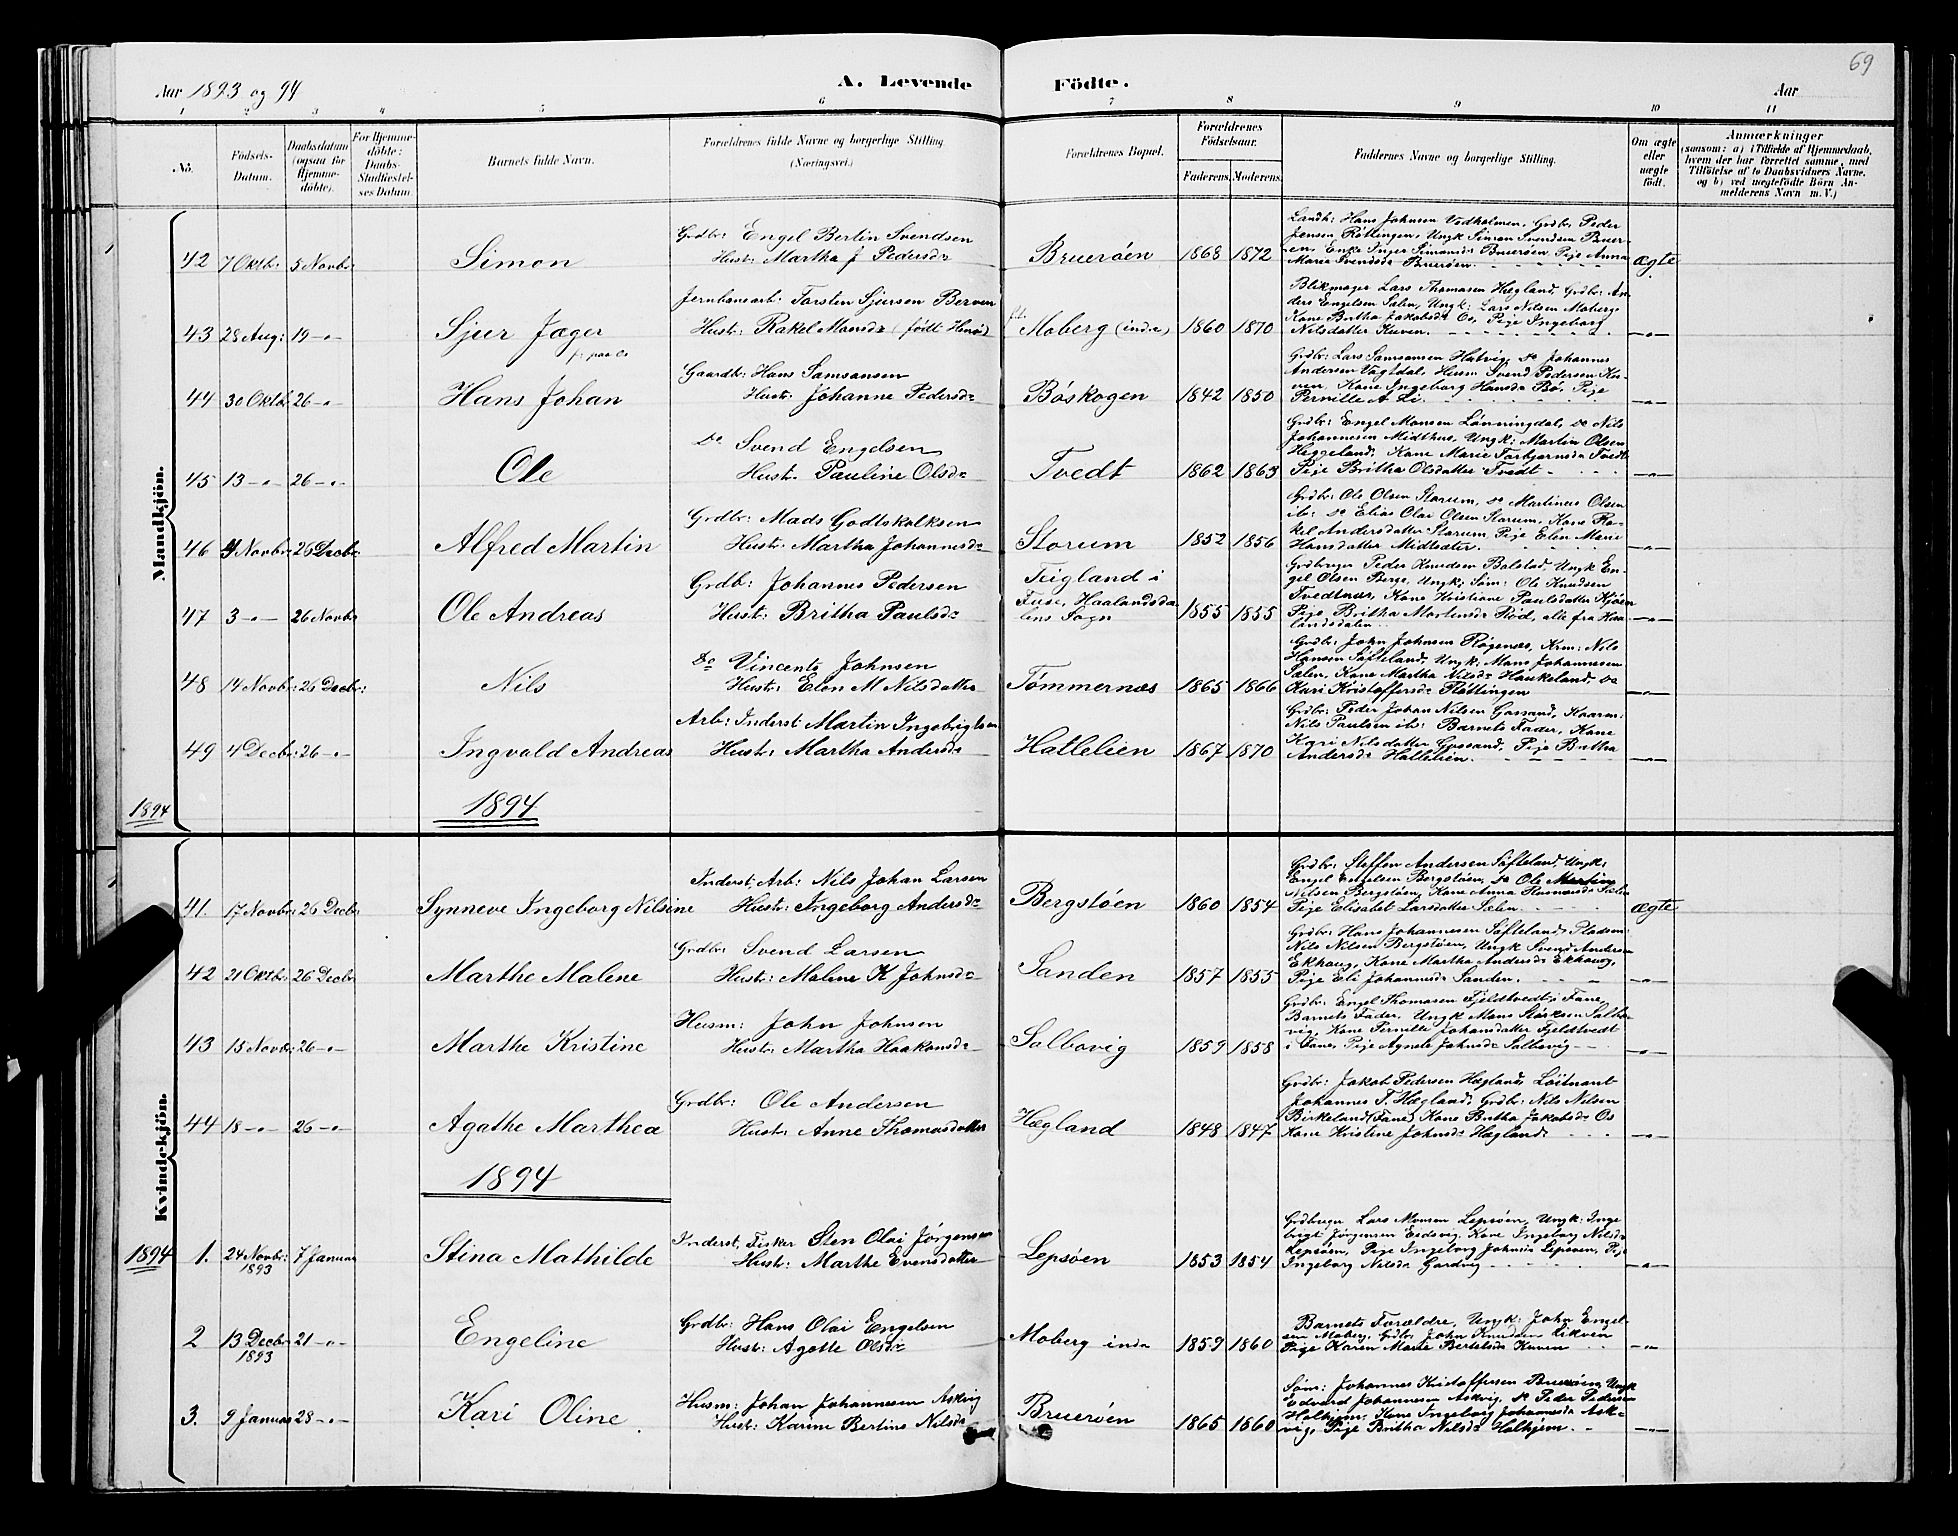 69
Aar 1893 og 94 A. Levende Födte. Aar
1 2 3 4 5 6 7 8 9 10 11
No. Födsels-Datum. Daabsdatum (ogsaa for Hjemmedöbte). For Hjemmedöbte: Daabs-Stadfæstelses Datum. Barnets fulde Navn. Forældrenes fulde Navne og borgerlige Stilling (Næringsvei.) Forældrenes Bopæl. Forældrenes Födselsaar. Faderens. Moderens. Faddernes Navne og borgerlige Stilling. Om ægte eller uægte födt. Anmærkninger (saasom: a) i Tilfælde af Hjemmedaab, hvem der har forrettet samme, med Tilföielse af to Daabsvidners Navne, og b) ved uægtefödte Börn Anmelderens Navn m. V.)
Mandkjön.
42 7 Oktbr: 5 Novbr: Simon Grdbr: Engel Berlin Svendsen
Hust: Martha J Pedersdr Bruerøen 1868 1872 Landh: Hans Johnsen Vedholmen, Grdbr Peder
Jensen Røttingen, Ungk Simon Svendsen Bruer-
øen, Enke Inger Simonsdr Bruerøen, Pige Anna
Marie Svendsdr Bruerøen. ægte
43 28 Aug: 19 -"- Sjur Jæger
f: paa Os Jernbanearb: Torsten Sjursen Berven
Hust: Rakel Monsdr (født Henøe) Moberg (indre) 1860 1870 Blikmager Lars Thomasen Hægland, Grdbr: An-
ders Engelsen Sælen, Ungk: Lars Nilsen Moberg,
Kone Britha Jakobsdr Os, Pige Ingeborg
Nilsdatter Kuven. -"-
44 30 Oktbr 26 -"- Hans Johan Gaardbr: Hans Samsonsen
Hust: Johanne Pedersdr Bøskogen 1842 1850 Grdbr: Lars Samsonsen Hatvig, do Johannes
Andersen Vagtdal, Husm Svend Pedersen Ku-
ven, Kone Ingeborg Hansdr Bø, Pige
Pernille A Li. -"-
45 13 -"- 26 -"- Ole do Svend Engelsen
Hust: Pauline Olsdr Tvedt 1862 1863 Grdbr: Engel Monsen Lønningdal, do Nils
Johannesen Midthus, Ungk: Martin Olsen
Heggeland, Kone Marie Torbjørnsdr Tvedt
Pige Britha Olsdatter Tvedt -"-
46 4 Novbr: 26 Decbr Alfred Martin Grdbr: Mads Godtskalksen
Hust: Martha Johannesdr Storum 1852 1856 Grdbr: Ole Olsen Storum, do Martinus Olsen
ib: do Elias Olai Olsen Storum, Kone Ra-
kel Andersdatter Storum, Pige Elen Marie
Hansdatter Midtsæter. -"-
47 3 -"- 26 Novbr Ole Andreas Grdb: Johannes Pedersen
Hust: Britha Paulsdr Teigland i
Fuse, Haalandsda-
lens Sogn 1855 1855 Grdbruger Peder Knudsen Bolstad, Ungk En-
gel Olsen Berge, Ungk, Søm: Ole Knudsen
Tvedtnes, Kone Kristiane Paulsdatter Kjøen
Pige Britha Mortensdr Rød, alle fra Haa-
landsdalen. -"-
48 14 Novbr: 26 Decbr: Nils Do Vincents Johnsen
Hust: Elen M Nilsdatter Tømmernæs 1865 1866 Grdbr: John Johnsen Røgenæs, Krm: Nils
Hansen Søfteland, Ungk: Mons Johannesen
Sælen, Kone Martha Nilsdr Haukeland, do
Kari Kristoffersdr Røttingen -"-
49 4 Decbr: 26 -"- Ingvald Andreas Arb: Inderst: Martin Ingebrigtsen
Hust: Martha Andersdr Hatlelien 1867 1870 Grdbr: Peder Johan Nilsen Gassand, Kaarm:
Nils Paulsen ib: Barnets Fader, Kone
Kari Nilsdatter Gassand, Pige Britha
Andersdr Hatlelien. -"-
1894 1894
Kvindekjön.
41. 17 Novbr 26 Decbr Synneve Ingeborg Nilsine Inderst, Arb: Nils Johan Larsen
Hust: Ingeborg Andersdr Bergstøen 1860 1854 Grdbr: Steffen Andersen Søfteland, Ungk:
Engel Engelsen Bergstøen, do Ole Martin
Nilsen Bergstøen, Kone Anna Rasmusdr Sælen
Pige Elisabet Larsdatter Sælen. ægte
42 21 Oktbr: 26 Decbr Marthe Malene Grdbr: Svend Larsen
Hust: Malene K Johnsdr Sanden 1857 1855 Grdbr: Hans Johannesen Søfteland, Pladsm:
Nils Nilsen Bergstøen, Ungk Svend Andersen
Ekhaug, Kone Martha Andersdr Ekhaug,
Pige Eli Johannesdr Sanden. -"-
43 15 Novbr: 26 -"- Marthe Kristine Husm: John Johnsen
Hust: Martha Haakonsdr Solbovig 1859 1858 Grdbr: Engel Thomasen Fjeldtvedt i Fane,
Barnets Fader, Ungk Mons Størksen Salbo-
vig, Kone Pernille Johansdatter Fjeldtvedt
i Fane, Pige Agnete Johnsdr Salbovig -"-
44 18 -"- 26 -"- Agathe Marthea Grdbr: Ole Andersen
Hust: Anne Thomasdatter Hægland 1848 1847 Grdbr: Jakob Pedersen Hægland, Løitnant
Johannes T. Hægland, Grdbr: Nils Nilsen
Birkeland (Fane) Kone Britha Jakobsdr Os
Kone Kristine Johnsdr Hægland. -"-
1894
1894 1. 24 Novbr: 1893 7 Januar Stina Mathilde Inderst, Fisker Sten Olai Jørgensen
Hust: Marthe Evensdatter Lepsøen 1853 1854 Grdbruger Lars Monsen Lepsøen, Ungk: Inge
brigt Jørgensen Eidsvig, Kone Ingeborg Nilsdr
Lepsøen, Pige Ingeborg Johnsdr Lepsøen, Pige
Ingeborg Nilsdr Gardvig -"-
2 13 Decbr 1893 21 -"- Engeline Grdbr: Hans Olai Engelsen
Hust: Agathe Olsdr Moberg indr 1859 1860 Barnets Forældre, Ungk: John Engel-
sen Moberg, Grdbr John Knudsen Likven
Pige Karen Marie Bertelsdr Kuven -"-
3. 9 Januar 28 -"- Kari Oline Husm: Johan Johannesen Askvig
Hust: Karine Bertine Nilsdr Bruerøen 1865 1860 Søm: Johannes Kristoffersen Bruerøen, Ungk
Edvard Johannesen Askvig, do Peder Pedersen
Holhjem, Kone Ingeborg Johannesdr Ask-
vig, Pige Britha Nilsdr Holhjem. -"-